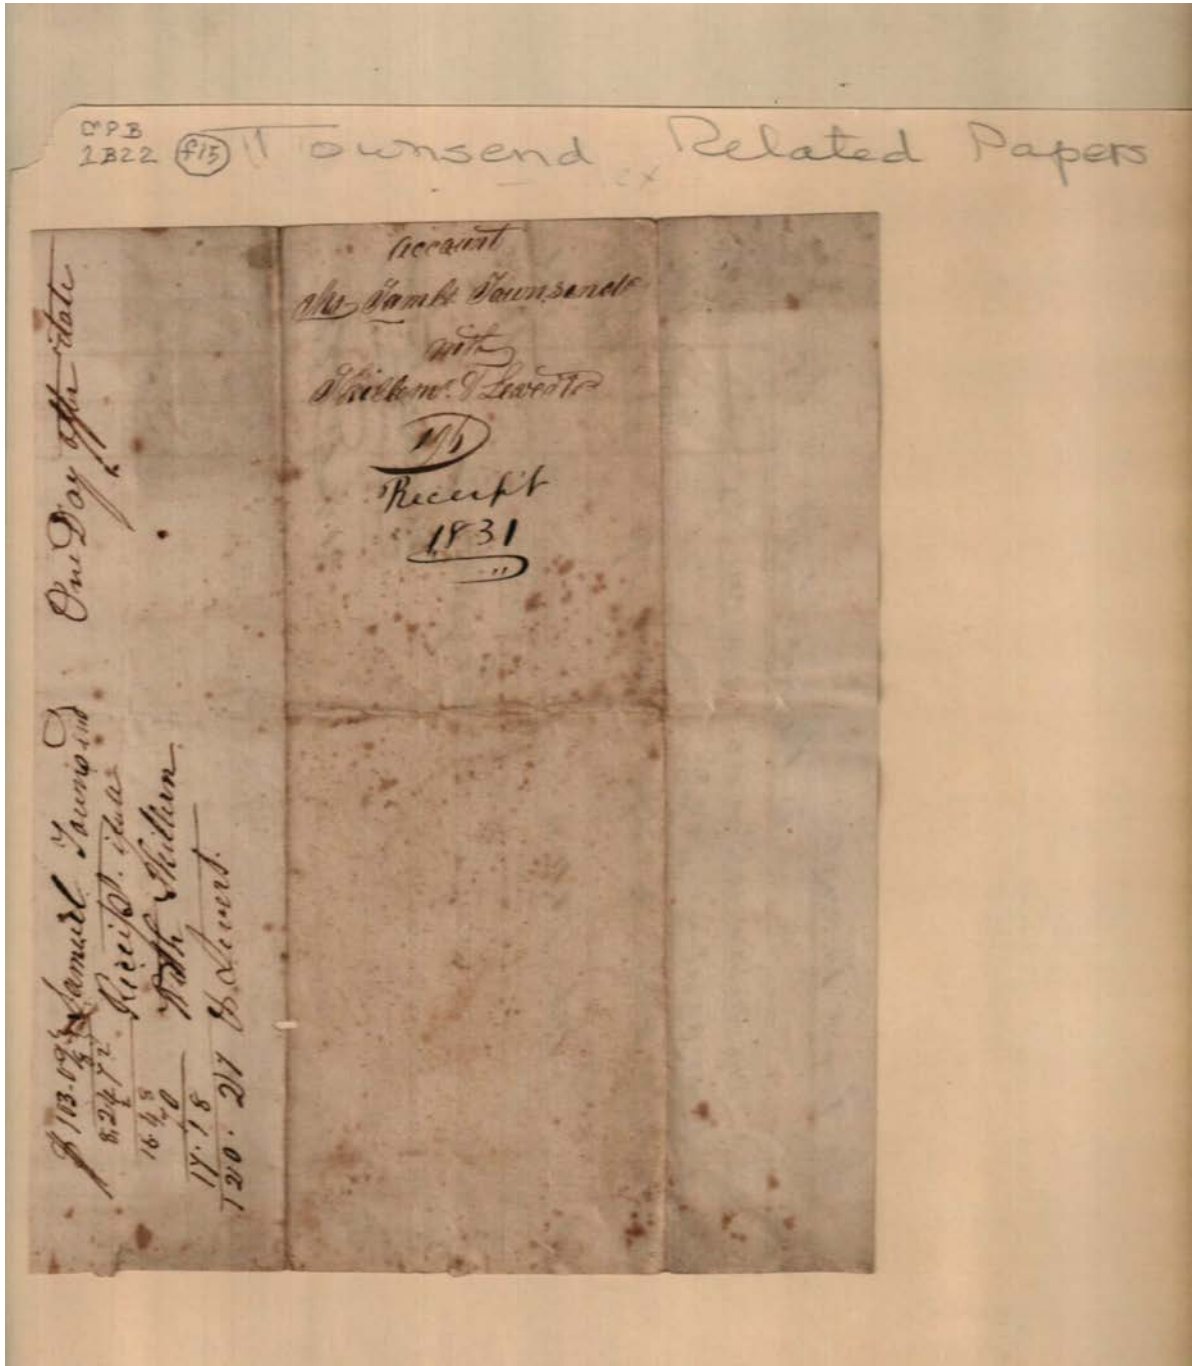 CPB
2B22 f15 Townsend Related Papers
Account
Mr Saml. Townsend
with
&
Receipt
1831
One Day after date
$103.09 Samuel Townsend
8.2472 Receipt. date
16.48 With Skillern
70
17.18
120.27 & Severs.